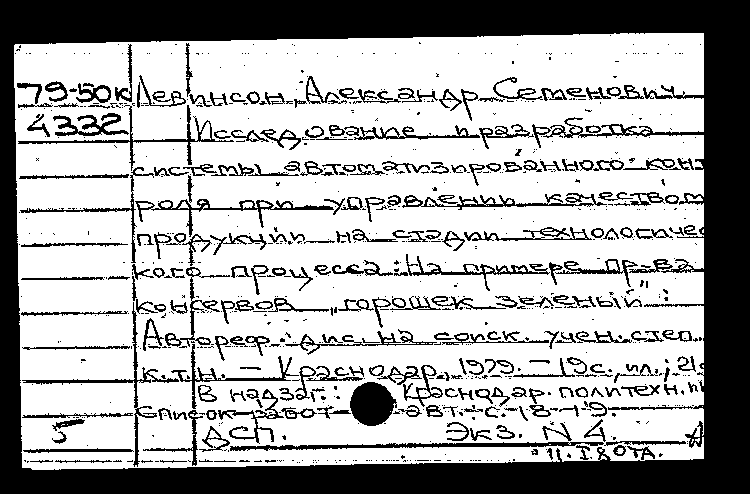 79-50к Левинсон, Александр Семенович.
4332 Исследование и разработка
системы автоматизированного конт
роля при управлении качеством
продукции на стадии технологичес
кого процесса: На примере пр-ва
консервов "горошек зеленый":
Автореф. дис. на соиск. учен. степ.
к.т.н. - Краснодар, 1979. - 19с., ил.; 21с
В надзаг.: Краснодар. политехн. ин
Список работ авт.: с. 18-19.
5 ДСП. Экз. N 4. А
11.I.80